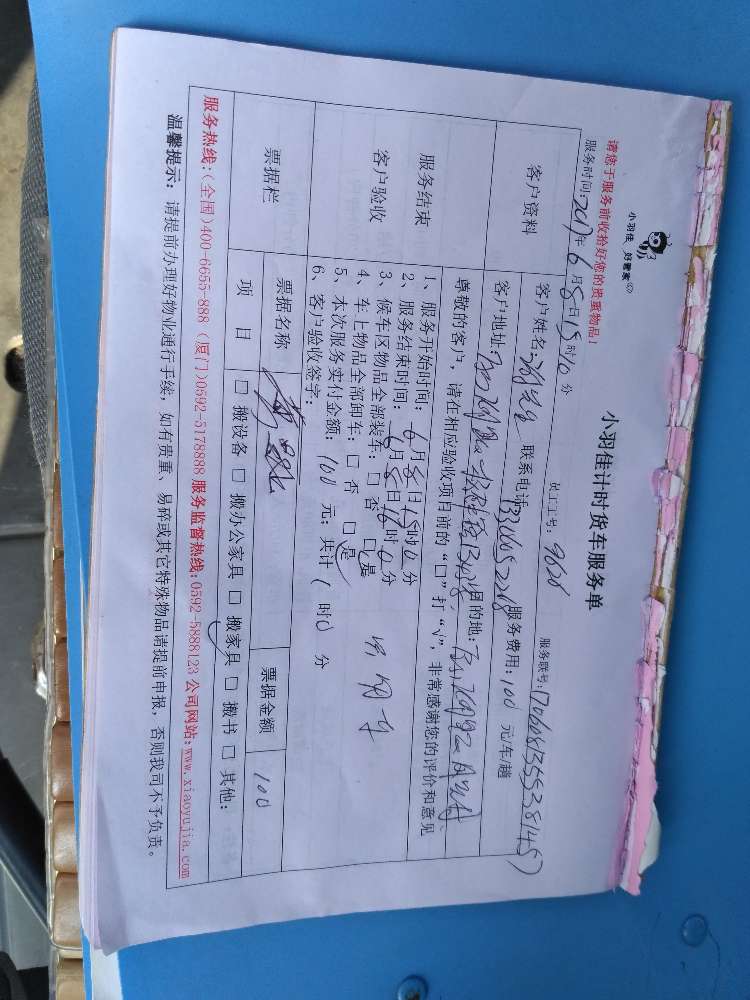 小羽佳 好管家
小羽佳计时货车服务单
请您于服务前收拾好您的贵重物品！
员工工号：9626
服务时间：2017年6月8日15时10分
服务账号：
客户资料
客户姓名： 联系电话： 服务费用：100 元车/趟
客户地址： 目的地：
尊敬的客户，请在相应验收项目前的“□”打“√”，非常感谢您的评价和意见
服务结束
客户验收
1、服务开始时间：6月8日15时10分
2、服务结束时间：6月8日16时10分
3、候车区物品全部装车：□ 否 □是
4、车上物品全部卸车：□ 否 □是
5、本次服务实付金额：100 元；共计 1 时0 分
6、客户验收签字：
票据栏
票据名称
票据金额
100
项 目
□ 搬设备 □ 搬办公家具 □ 搬家具 □ 搬书 □ 其他：
服务热线：(全国)400-6655-888 (厦门)0592-5178888 服务监督热线：0592-5888123 公司网站：www.xiaoyujia.com
温馨提示：请提前办理好物业通行手续，如有贵重、易碎或其它特殊物品请提前申报，否则我司不予负责。